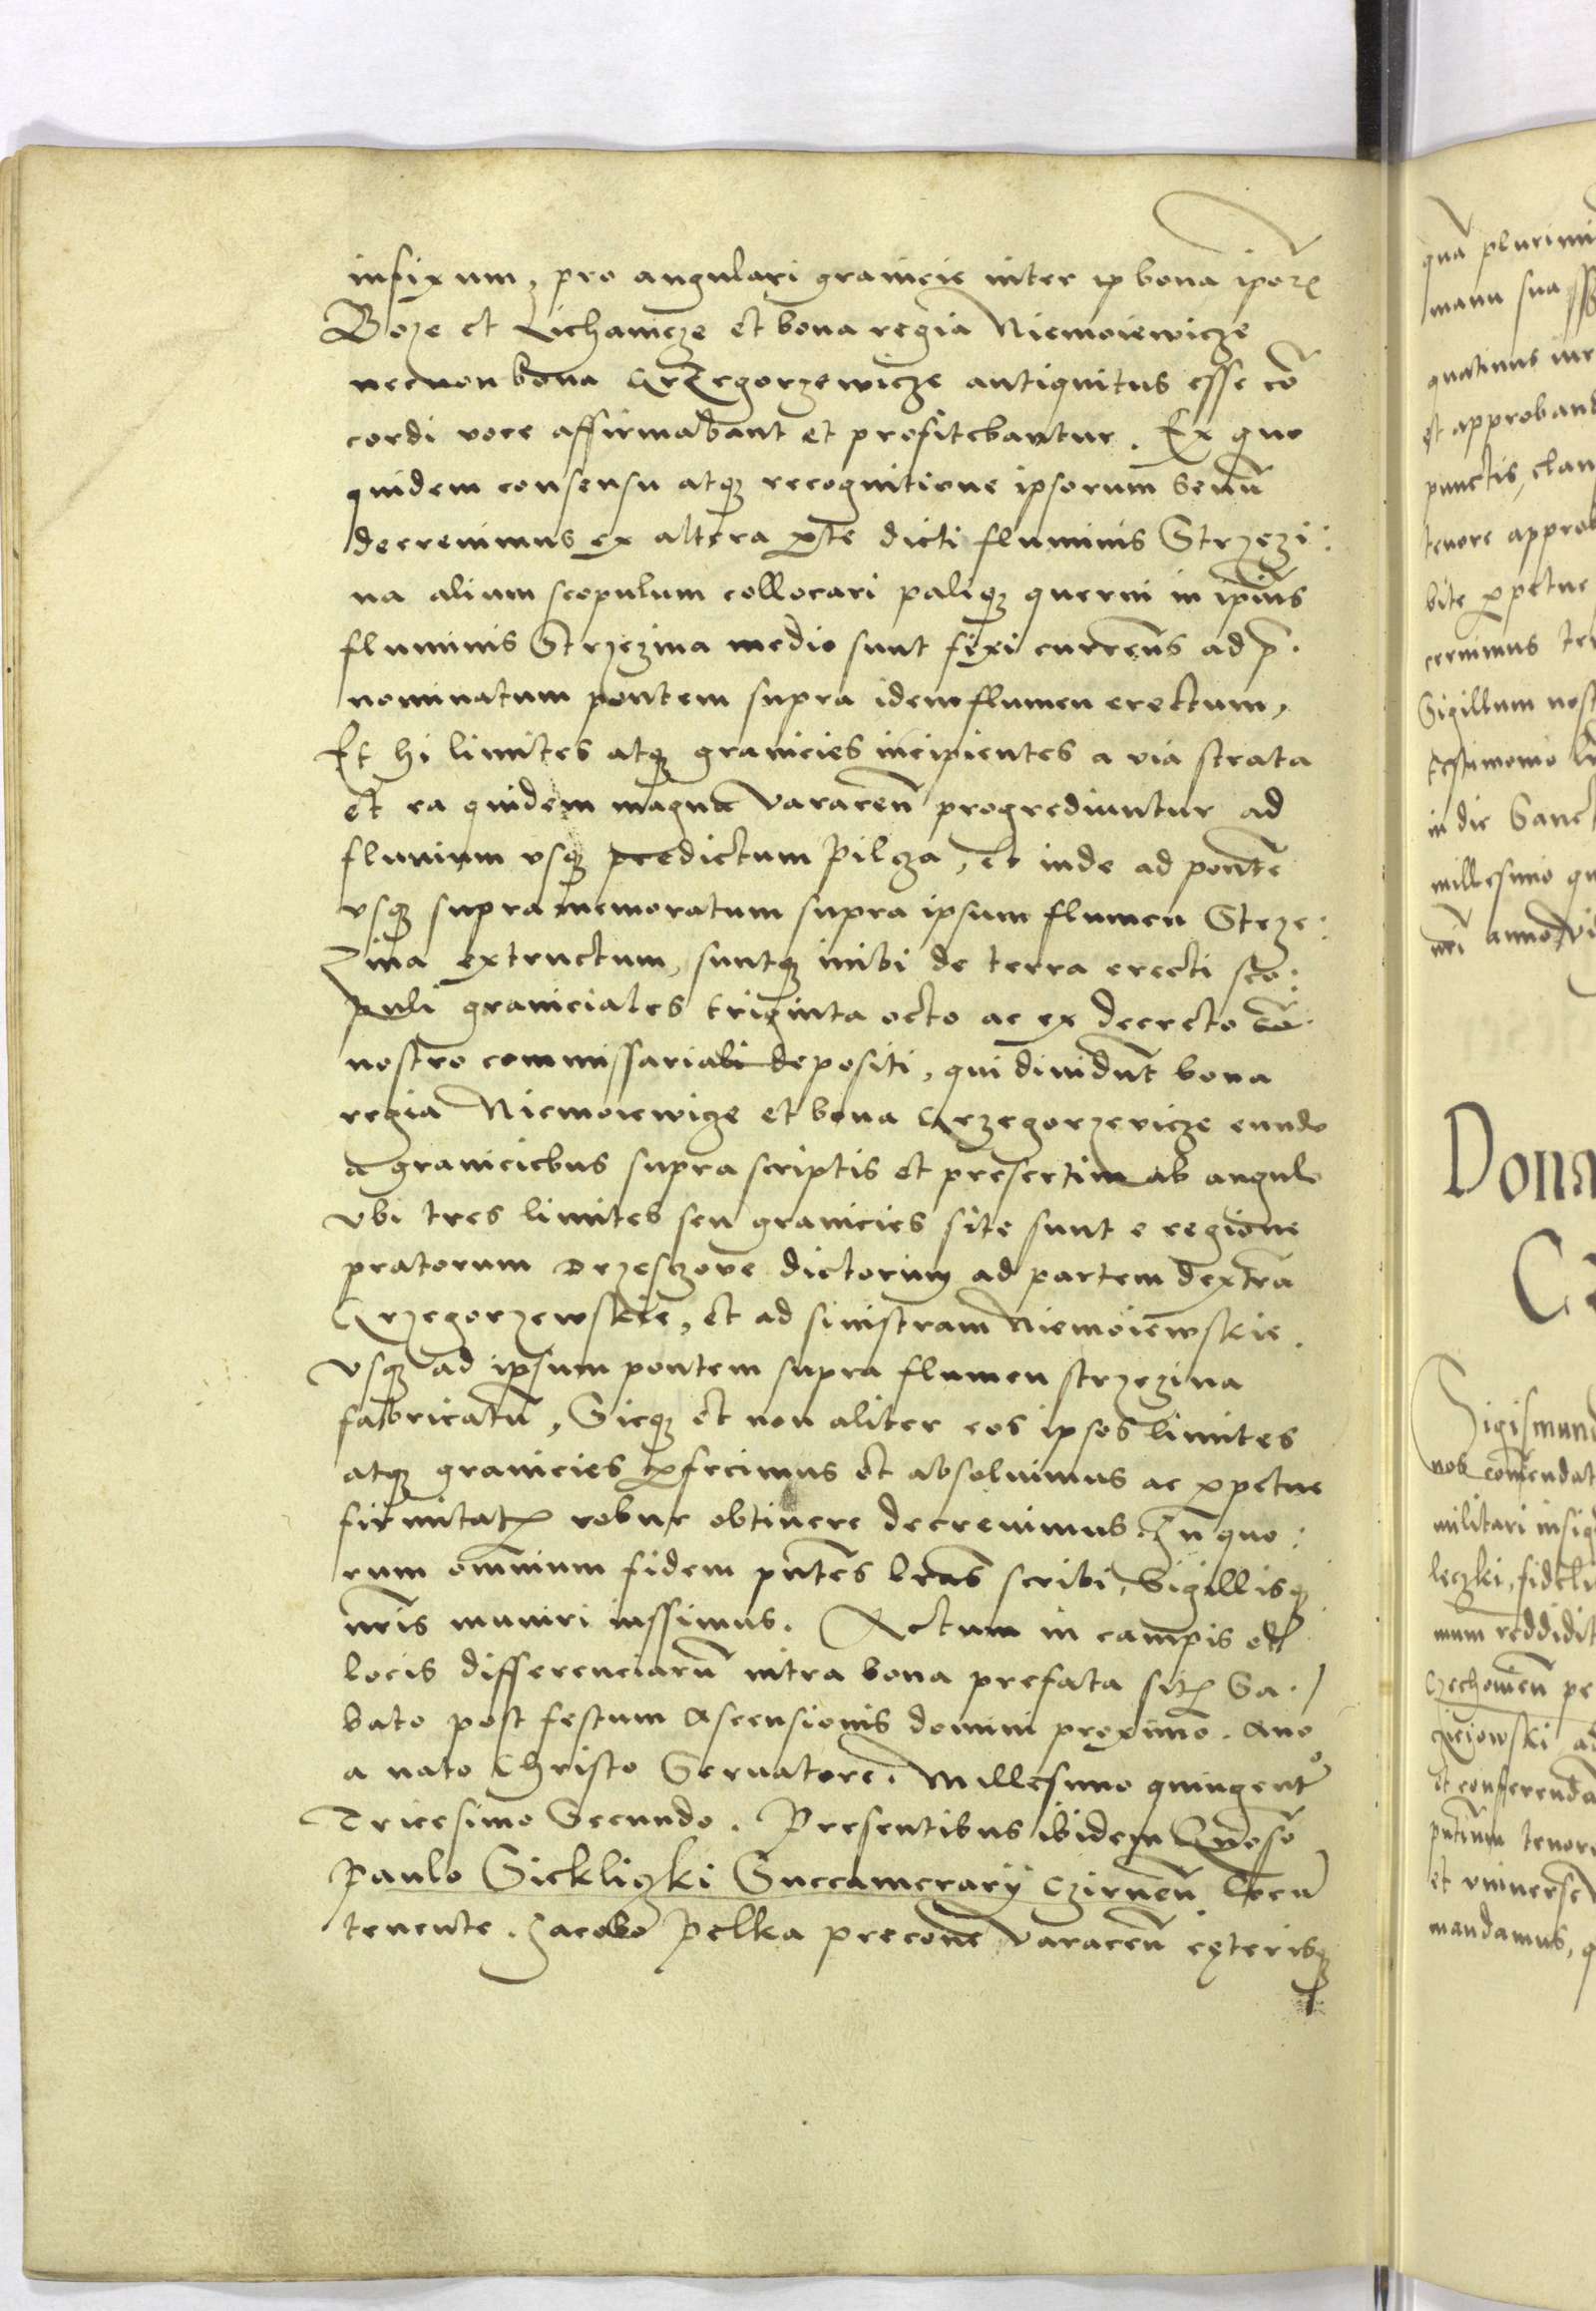 infixum, pro angulari granicie inter ip bona ipoꝝ
Boze et Lichanicze et bona regia Niemoiewicze
necnon bona Grzegorzewicze antiquitus esse cō
cordi voce affirmabant et profitebantur. Ex quo
quidem consensu atqȝ recognitione ipsorum senū
decrevimus ex altera ꝑte dicti fluminis Strzezi:
na alium scopulum collocari paliqȝ querni in ipīus
fluminis Strzezina medio sunt fixi currens ad p̄.
nominatum pontem supra idem flumen erectum,
Et hi limites atqȝ granicies incipientes a via strata
et ea quidem magna Varacen̄ progrediuntur ad
fluvium vsqȝ predictum Pilcza, et inde ad pontē
vsqȝ supra memoratum supra ipsum flumen Steze:
zina extructum, suntqȝ inibi de terra erecti sco:
puli graniciales triginta octo ac ex decreto
nostro commissariali depositi, qui dividūt bona
regia Niemoiewicze et bona Grzegorzevicze eundo
a graniciebus supra scriptis et presertim ab angulo
vbi tres limites seu granicies site sunt e regione
pratorum Drzesczove dictorum ad partem dextrā
Grzegorzewskie, et ad sinistram Niemoiewskie.
vsqȝ ad ipsum pontem supra flumen strzezina
fabricatū, Sicqȝ et non aliter eos ipsos limites
atqȝ granicies ꝑfecimus et absoluimus ac ꝑpetue
firmitatꝭ robur obtinere decrevimus. In quo:
rum omnium fidem pn̄tes lr̄as scribi, Sigillisqȝ
nr̄is muniri iussimus. Actum in campis et
locis differenciarū intra bona prefata sitꝭ Sa:
bato post festum Ascensionis domini proximo. Ano
a nato Christo Servatore. Millesimo quingentº
Tricesimo Secundo. Presentibus ibidem Gn̄oso
Paulo Sicklizki Succamerarij Czirnen̄ Locū
tenente. Jacobo Pelka precone Varacen̄ cęterisqȝ
quā plurimi
manu sua
quatinus
et approban
punctis, clau
tenore approb
bite ꝑpetue
cernimus
Sigillum nost
testimonio
in die Sanct
millesimo qu
nr̄i anno
Dona
Sigismund
nob comendat
militari insig
leczki, fideli
mum reddidit
Czechowien̄ pe
ad
et conferenda
pn̄tium tenore
et vniverse
mandamus, q